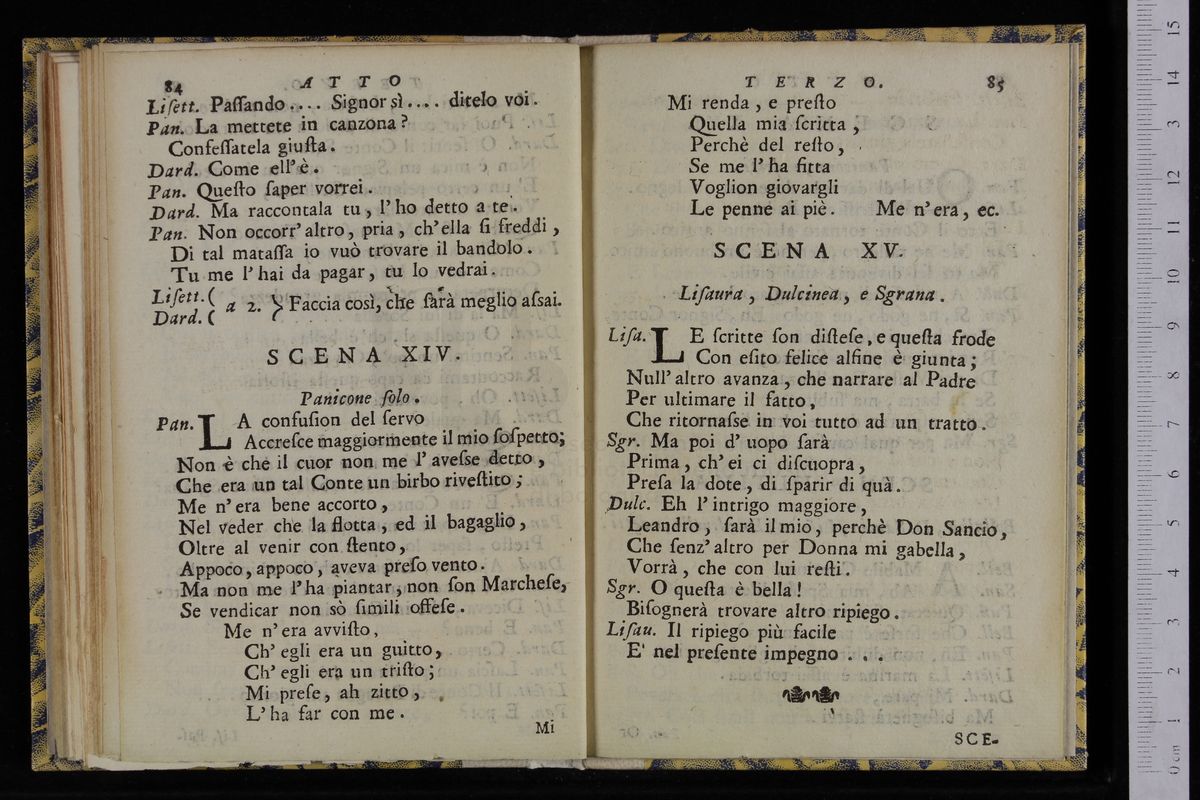 84 A T T O
Lisett. Paſſando.... Signor sì.... ditelo voi.
Pan. La mettete in canzona?
Confeſſatela giuſta.
Dard. Come ell' è.
Pan. Queſto ſaper vorrei.
Dard. Ma raccontala tu, l' ho detto a te.
Pan. Non occorr' altro, pria, ch' ella ſi freddi,
Di tal mataſſa io vuò trovare il bandolo.
Tu me l' hai da pagar, tu lo vedrai.
Liſett. (
Dard. ( a 2. } Faccia così, che ſarà meglio aſsai.
S C E N A XIV.
Panicone ſolo.
Pan. LA confuſion del ſervo
Accreſce maggiormente il mio ſoſpetto;
Non è che il cuor non me l' aveſse detto,
Che era un tal Conte un birbo riveſtito;
Me n' era bene accorto,
Nel veder che la flotta, ed il bagaglio,
Oltre al venir con ſtento,
Appoco, appoco, aveva preſo vento.
Ma non me l' ha piantar, non ſon Marcheſe,
Se vendicar non sò ſimili offeſe.
Me n' era avviſto,
Ch' egli era un guitto,
Ch' egli era un triſto;
Mi preſe, ah zitto,
L' ha far con me.
Mi
T E R Z O. 85
Mi renda, e preſto
Quella mia ſcritta,
Perchè del reſto,
Se me l' ha fitta
Voglion giovargli
Le penne ai piè. Me n' era, ec.
S C E N A XV.
Liſaura, Dulcinea, e Sgrana.
Liſa. LE ſcritte ſon diſteſe, e queſta frode
Con eſito felice alfine è giunta;
Null' altro avanza, che narrare al Padre
Per ultimare il fatto,
Che ritornaſse in voi tutto ad un tratto.
Sgr. Ma poi d' uopo ſarà
Prima, ch' ei ci diſcuopra,
Preſa la dote, di ſparir di quà.
Dulc. Eh l' intrigo maggiore,
Leandro, ſarà il mio, perchè Don Sancio,
Che ſenz' altro per Donna mi gabella,
Vorrà, che con lui reſti.
Sgr. O queſta è bella!
Biſognerà trovare altro ripiego.
Liſau. Il ripiego più facile
E' nel preſente impegno...
SCE-
0 cm 1 2 3 4 5 6 7 8 9 10 11 12 13 14 15